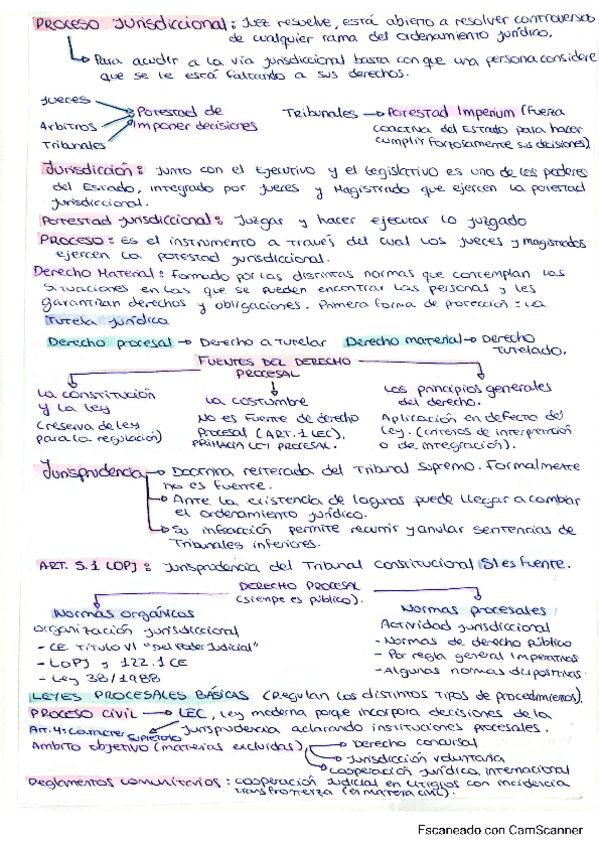 PROCESO Jurisdiccional: Juez resuelve, está abierto a resolver controversias
de cualquier rama del ordenamiento jurídico.
→ Para acudir a la vía jurisdiccional basta con que una persona considere
que se le está faltando a sus derechos.
Jueces
Arbitros → Potestad de imponer decisiones
Tribunales
Tribunales → Potestad Imperium (fuerza
coactiva del Estado para hacer
cumplir forzosamente sus decisiones)
Jurisdicción: Junto con el Ejecutivo y el Legislativo es uno de los poderes
del Estado, integrado por Jueces y Magistrado que ejercen la potestad
jurisdiccional.
Potestad jurisdiccional: Juzgar y hacer ejecutar lo juzgado
PROCESO: Es el instrumento a través del cual los jueces y magistrados
ejercen la potestad jurisdiccional.
Derecho Material: Formado por las distintas normas que contemplan las
situaciones en las que se pueden encontrar las personas y les
garantizan derechos y obligaciones. Primera forma de protección: La
Tutela Jurídica
Derecho procesal → Derecho a tutelar Derecho material → Derecho
Tutelado.
FUENTES DEL DERECHO
PROCESAL
La constitución
y la Ley
(reserva de Ley
para la regulación)
La costumbre
No es Fuente de derecho
Procesal (ART. 1 LEC),
PRIMACIA LEY PROCESAL.
Los principios generales
del derecho.
Aplicación en defecto de
Ley. (criterios de interpretación
o de integración).
Jurisprudencia → Doctrina reiterada del Tribunal Supremo. Formalmente
no es fuente.
→ Ante la existencia de lagunas puede llegar a cambiar
el ordenamiento jurídico.
→ Su infracción permite recurrir y anular sentencias de
Tribunales inferiores.
ART. 5.1 LOPJ: Jurisprudencia del Tribunal Constitucional SI es fuente.
DERECHO PROCESAL
(siempre es público).
Normas orgánicas
Organización jurisdiccional
- CE TITULO VI "Del Poder Judicial"
- LOPJ y 122.1 CE
- Ley 38/1988
Normas procesales
Actividad jurisdiccional
- Normas de derecho público
- Por regla general Imperativas
- Algunas normas dispositivas.
LEYES PROCESALES BÁSICAS (Regulan los distintos tipos de procedimientos).
PROCESO CIVIL → LEC, Ley moderna porque incorpora decisiones de la
Jurisprudencia aclarando instituciones procesales.
Art. 4: carácter supletorio
Ámbito objetivo (materias excluidas) → Derecho concursal
→ Jurisdicción voluntaria
→ Cooperación jurídica internacional
Reglamentos comunitarios: cooperación judicial en litigios con incidencia
transfronteriza (en materia civil).
Escaneado con CamScanner